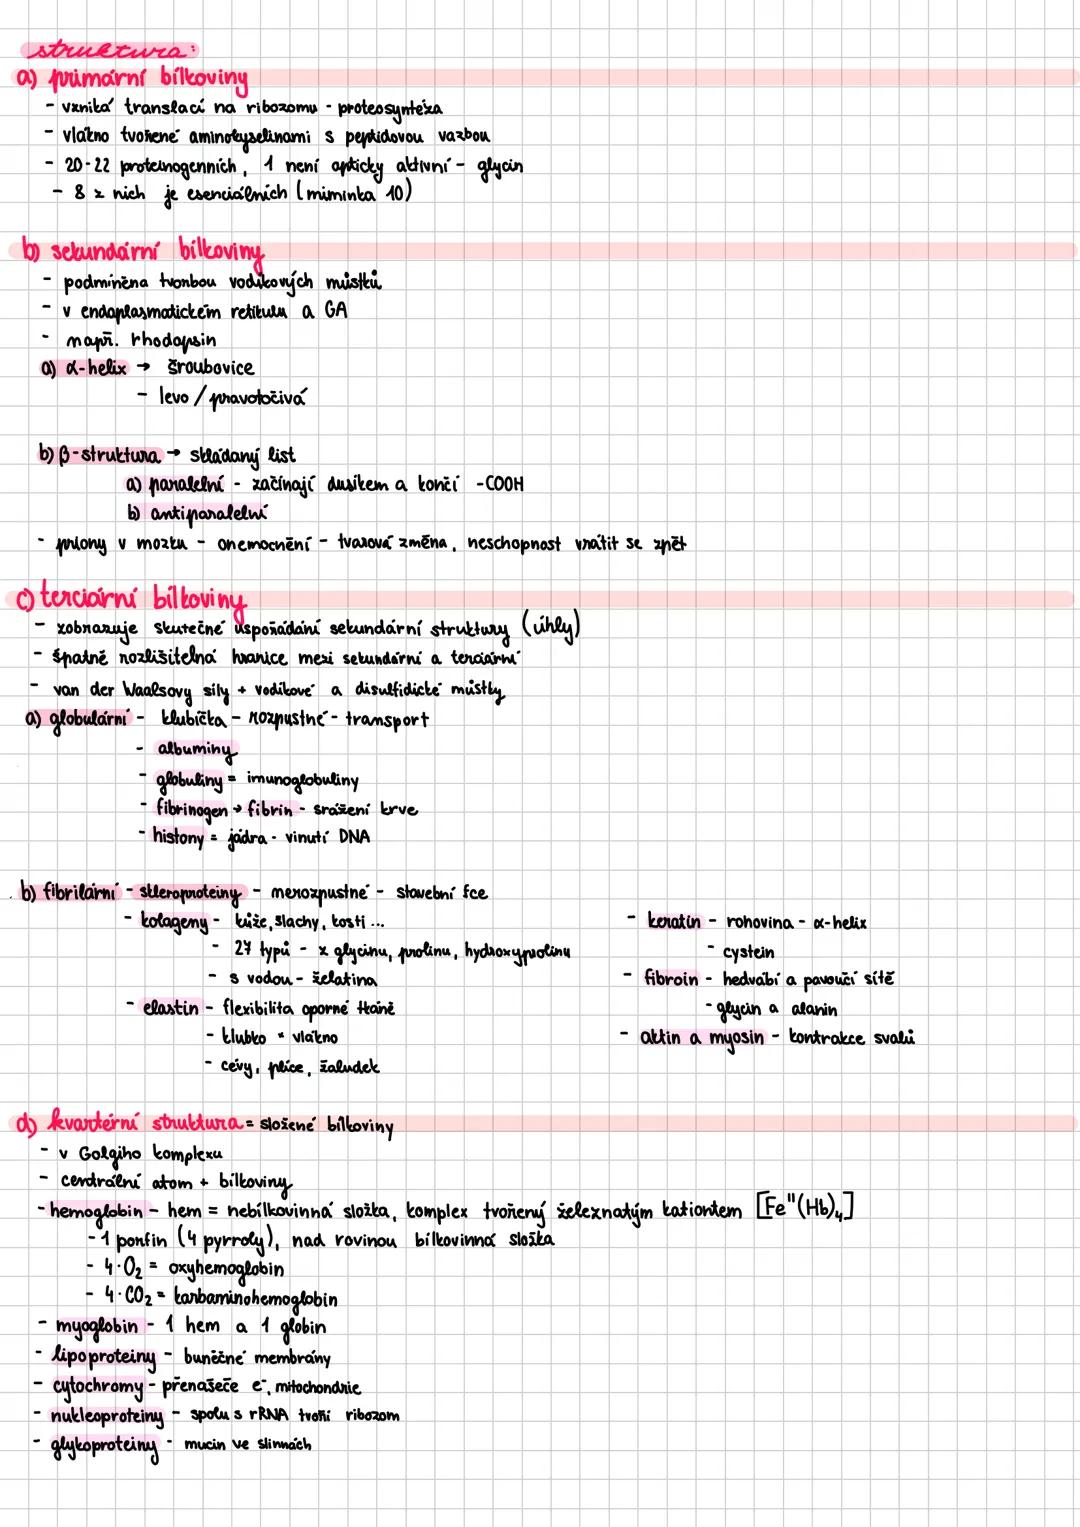 struktura:
a) primární bílkoviny
- vzniká translací na ribozomu - proteosyntéza
- vlákno tvořené aminokyselinami s peptidovou vazbou
- 20-22 proteinogenních, 1 není opticky aktivní - glycin
- 8 z nich je esenciálních (miminka 10)
b) sekundární bílkoviny
- podmíněna tvorbou vodíkových můstků
- v endoplasmatickém retikulu a GA
- např. rhodopsin
a) α-helix → šroubovice
- levo / pravotočivá
b) β-struktura → skládaný list
a) paralelní - začínají dusíkem a končí -COOH
b) antiparalelní
- priony v mozku - onemocnění - tvarová změna, neschopnost vrátit se zpět
c) terciární bílkoviny
- zobrazuje skutečné uspořádání sekundární struktury (úhly)
- špatně rozlišitelná hranice mezi sekundární a terciární
- van der Waalsovy síly + vodíkové a disulfidické můstky
a) globulární - klubíčka - rozpustné - transport
- albuminy
- globuliny = imunoglobuliny
- fibrinogen → fibrin - srážení krve
- histony = jádra - vinutí DNA
b) fibrilární - skleroproteiny - nerozpustné - stavební fce
- kolageny - kůže, šlachy, kosti ...
- 27 typů - z glycinu, prolinu, hydroxyprolinu
- s vodou - želatina
- elastin - flexibilita oporné tkáně
- klubko × vlákno
- cévy, plíce, žaludek
- keratin - rohovina - α-helix
- cystein
- fibroin - hedvábí a pavoučí sítě
- glycin a alanin
- aktin a myosin - kontrakce svalů
d) kvartérní struktura = složené bílkoviny
- v Golgiho komplexu
- centrální atom + bílkoviny
- hemoglobin - hem = nebílkovinná složka, komplex tvořený železnatým kationtem [Feᴵᴵ(Hb)₄]
- 1 porfin (4 pyrroly), nad rovinou bílkovinná složka
- 4·O₂ = oxyhemoglobin
- 4·CO₂ = karbaminohemoglobin
- myoglobin - 1 hem a 1 globin
- lipoproteiny - buněčné membrány
- cytochromy - přenašeče e⁻, mitochondrie
- nukleoproteiny - spolu s rRNA tvoří ribozom
- glykoproteiny - mucin ve slinnách